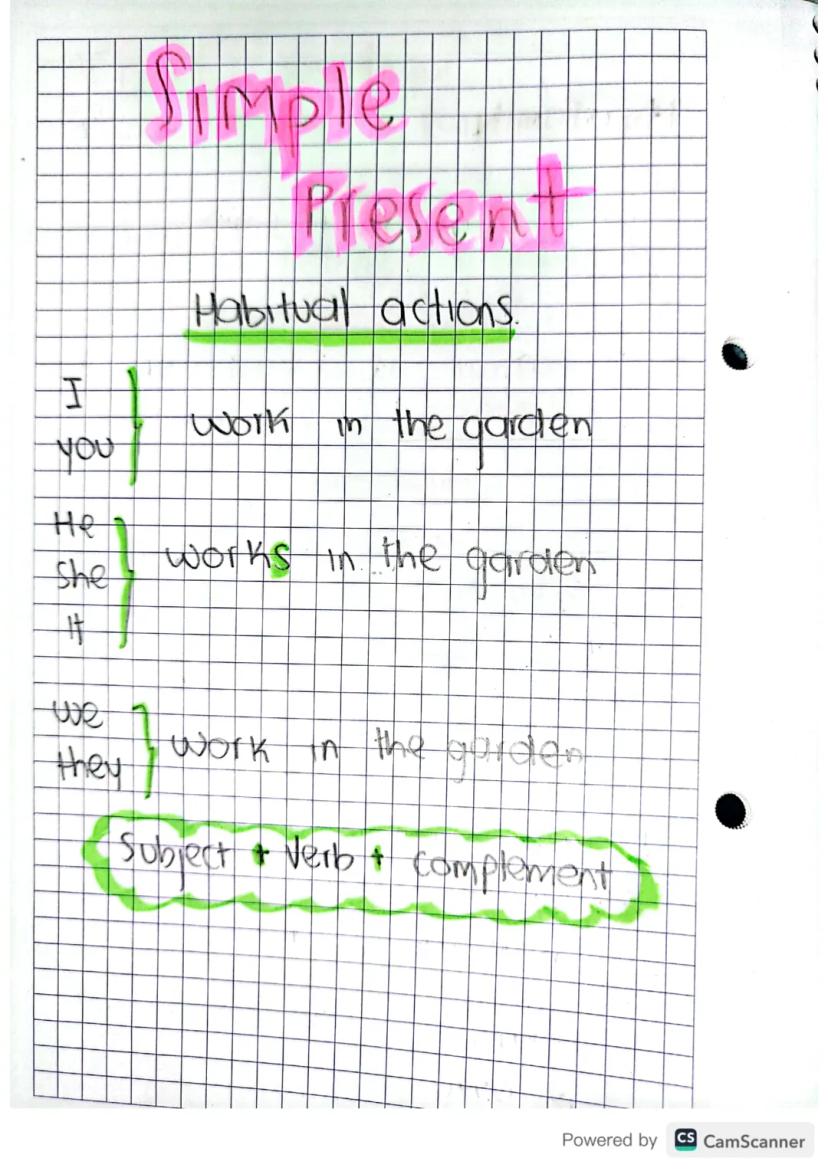 Simple
Present
Habitual actions.
I
you
work in the garden
He
she
It
works in the garden
we
they
work in the garden
Subject + Verb + complement
Powered by CS CamScanner